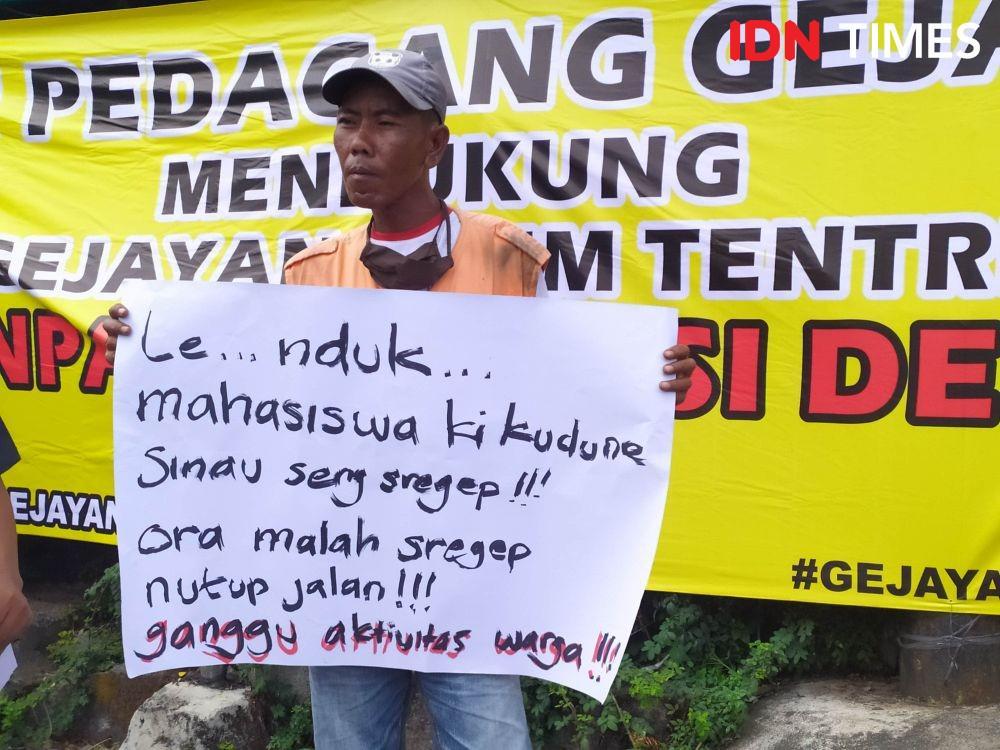 IDN TIMES
PEDAGANG GEJA
MENDUKUNG
GEJAYAN TENTR
DE
Le... nduk...
mahasiswa ki kudune
Sinau seng sregep!!!
ora malah sregep
nutup jalan!!!
ganggu aktivitas warga!!!
GEJAYAN
#GEJAYA